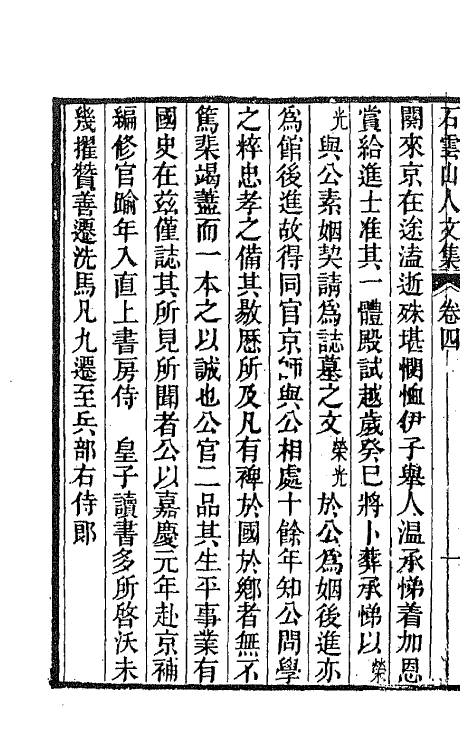 石雲山人文集 卷四 一
闕來京在途溘逝殊堪憫恤伊子舉人溫承悌着加恩
賞給進士准其一體殿試越歲癸巳將卜葬承悌以榮
光與公素姻契請為誌墓之文榮光於公為姻後進亦
為館後進故得同官京師與公相處十餘年知公問學
之粹忠孝之備其敭歷所及凡有裨於國於鄉者無不
篤棐竭藎而一本之以誠也公官二品其生平事業有
國史在茲僅誌其所見所聞者公以嘉慶元年赴京補
編修官踰年入直上書房侍 皇子讀書多所啓沃未
幾擢贊善遷洗馬凡九遷至兵部右侍郎